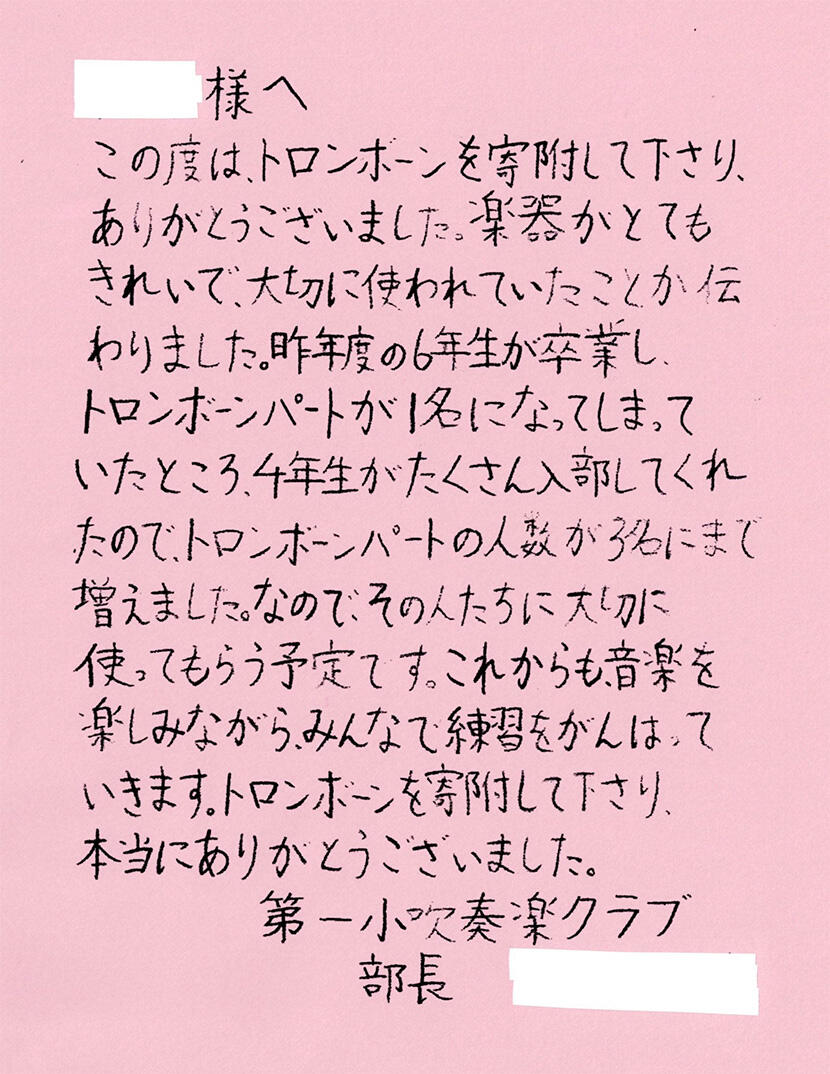 様へ
この度は、トロンボーンを寄附して下さり、
ありがとうございました。楽器がとても
きれいで、大切に使われていたことが伝
わりました。昨年度の6年生が卒業し、
トロンボーンパートが1名になってしまって
いたところ、4年生がたくさん入部してくれ
たので、トロンボーンパートの人数が3名にまで
増えました。なので、その人たちに大切に
使ってもらう予定です。これからも、音楽を
楽しみながら、みんなで練習をがんばって
いきます。トロンボーンを寄附して下さり、
本当にありがとうございました。
第一小吹奏楽クラブ
部長